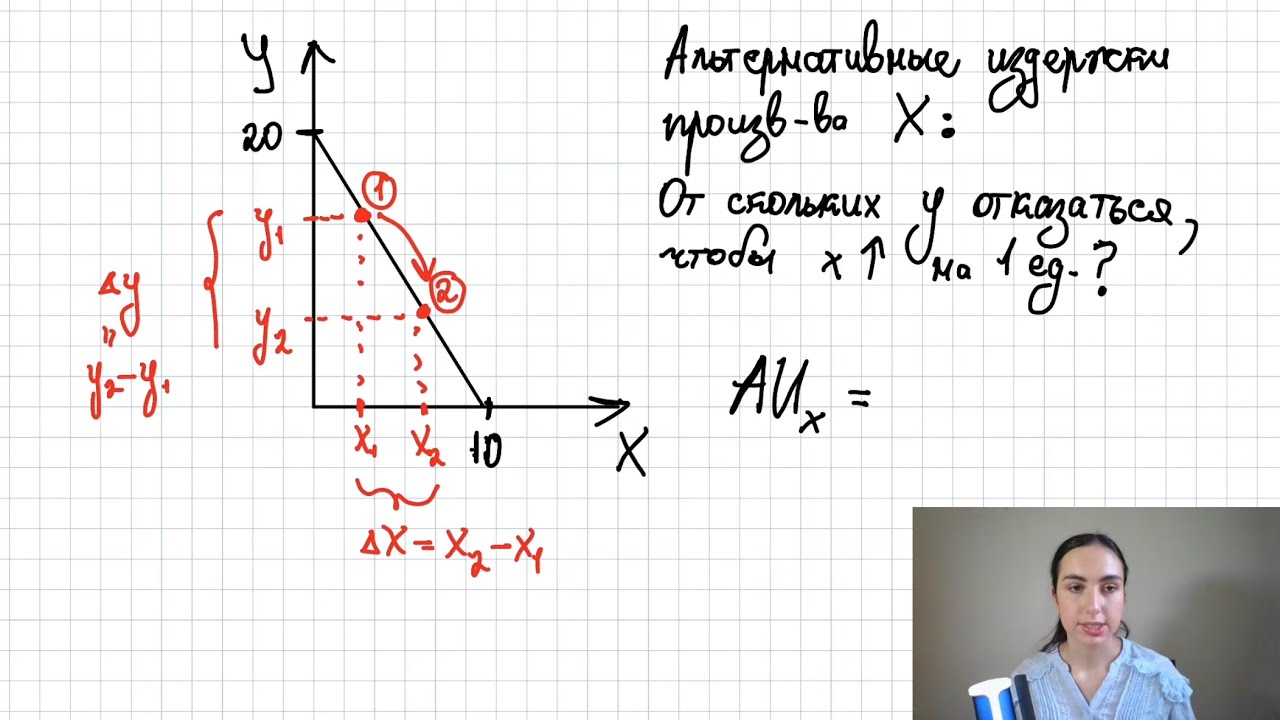 y
20
①
y₁
②
Δy
"
y₂
y₂-y₁
x₁
x₂
10
X
ΔX = X₂ - X₁
Альтернативные издержки
произв-ва X:
От скольких y отказаться,
чтобы x ↑ на 1 ед.?
АИₓ =